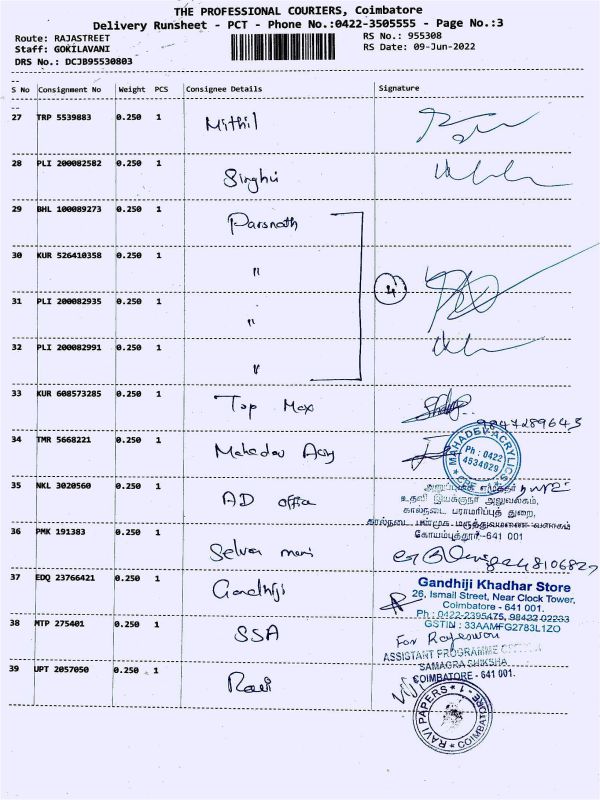 THE PROFESSIONAL COURIERS, Coimbatore
Delivery Runsheet - PCT - Phone No.:0422-3505555 - Page No.:3
Route: RAJASTREET
RS No.: 955308
Staff: GOKILAVANI
RS Date: 09-Jun-2022
DRS No.: DCJB95530803
S No Consignment No Weight PCS Consignee Details Signature
27 TRP 5539883 0.250 1 Mithil
28 PLI 200082582 0.250 1 Singhvi
29 BHL 100089273 0.250 1 Parsnath
30 KUR 526410358 0.250 1 "
4
31 PLI 200082935 0.250 1 "
32 PLI 200082991 0.250 1 "
33 KUR 608573285 0.250 1 Top Max
9847289643
34 TMR 5668221 0.250 1 Mahadev Acry
MAHADEV ACRYLICS
Ph : 0422
4534029
CBE - 1
35 NKL 3020560 0.250 1 AD office
உதவி இயக்குநர் அலுவலகம்,
கால்நடை பராமரிப்புத் துறை,
கால்நடை பன்முக மருத்துவமனை வளாகம்
கோயம்புத்தூர்-641 001
36 PMK 191383 0.250 1 Selva mani
37 EDQ 23766421 0.250 1 Gandhiji
Gandhiji Khadhar Store
26, Ismail Street, Near Clock Tower,
Coimbatore - 641 001.
Ph : 0422-2395475, 98422 02233
GSTIN : 33AAMFG2783L1ZO
38 MTP 275401 0.250 1 SSA
For Rajeswari
ASSISTANT PROGRAMME
SAMAGRA SHIKSHA
COIMBATORE - 641 001.
39 UPT 2057050 0.250 1 Ravi
RAVI PAPERS
COIMBATORE - 1